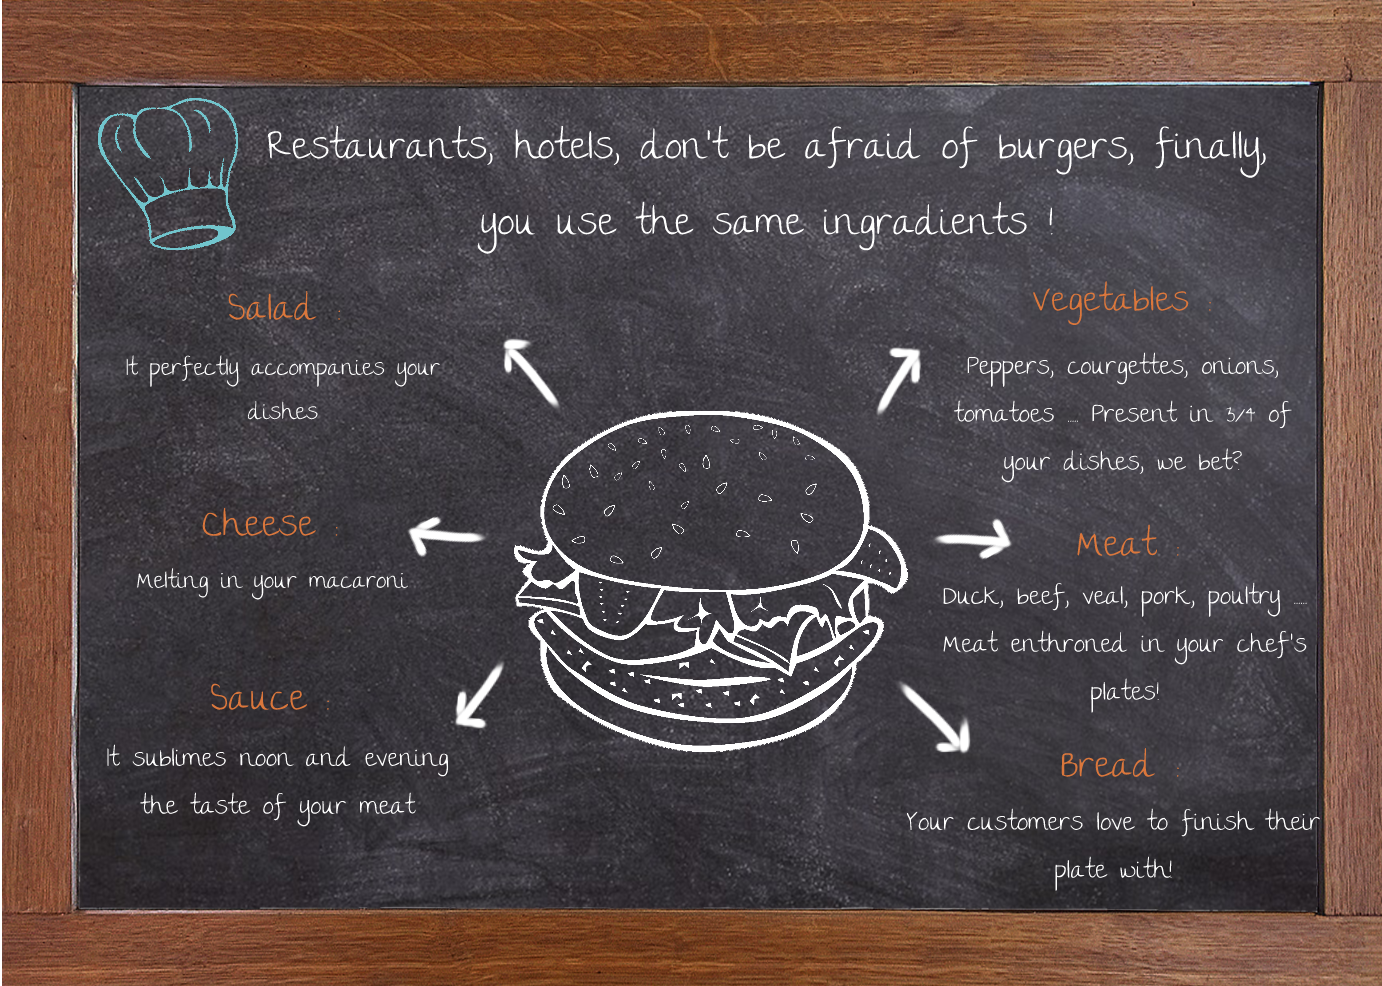 Restaurants, hotels, don't be afraid of burgers, finally,
you use the same ingradients !
Salad :
It perfectly accompanies your
dishes
Cheese :
Melting in your macaroni
Sauce :
It sublimes noon and evening
the taste of your meat
Vegetables :
Peppers, courgettes, onions,
tomatoes .... Present in 3/4 of
your dishes, we bet?
Meat :
Duck, beef, veal, pork, poultry ....
Meat enthroned in your chef's
plates!
Bread :
Your customers love to finish their
plate with!